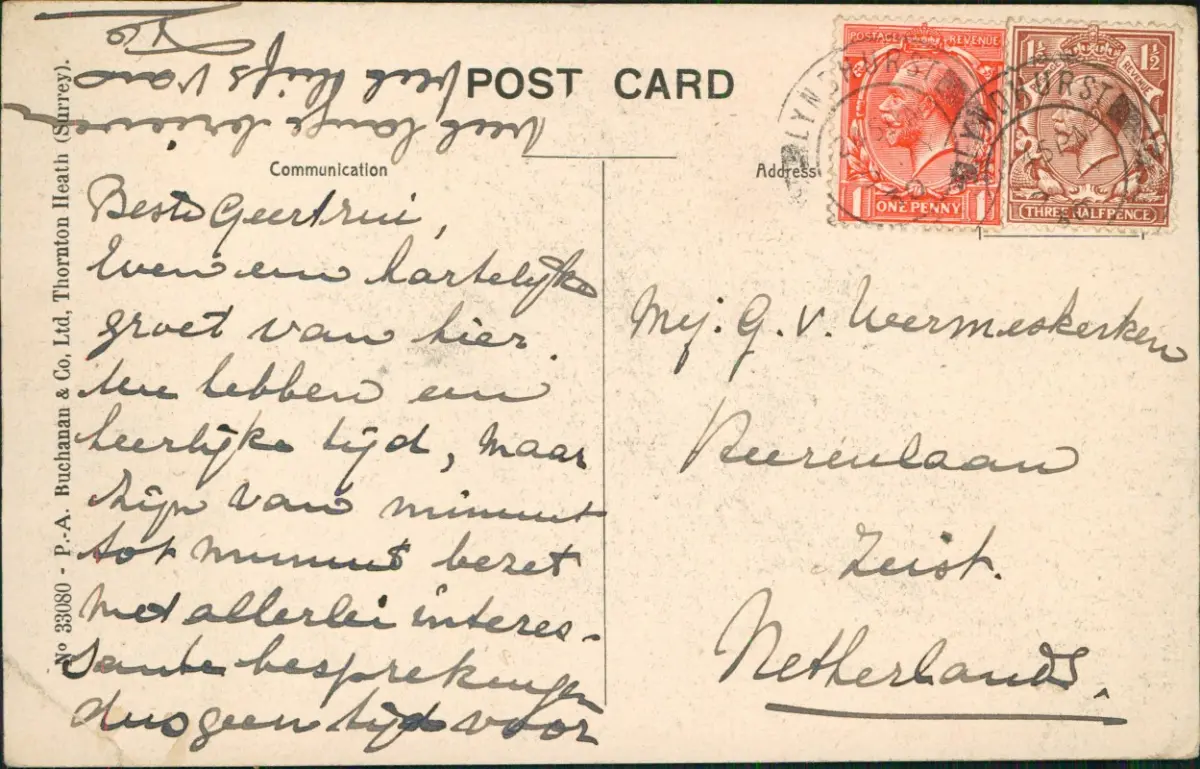 POST CARD
Communication
Address
Beste Geertrui,
Even een hartelijke
groet van hier.
We hebben een
heerlijke tijd, maar
zijn van minuut
tot minuut bezet
met allerlei interes-
sante besprekingen
dus geen tijd voor
veel lange brieven
veel liefs van
Mej. G. v. Wermeskerken
Zeist.
Netherlands.
No 33080 - P.-A. Buchanan & Co, Ltd, Thornton Heath (Surrey).
POSTAGE REVENUE
1 ONE PENNY 1
1½ 1½
REVENUE
THREE HALFPENCE
LYNDHURST
LYNDHURST